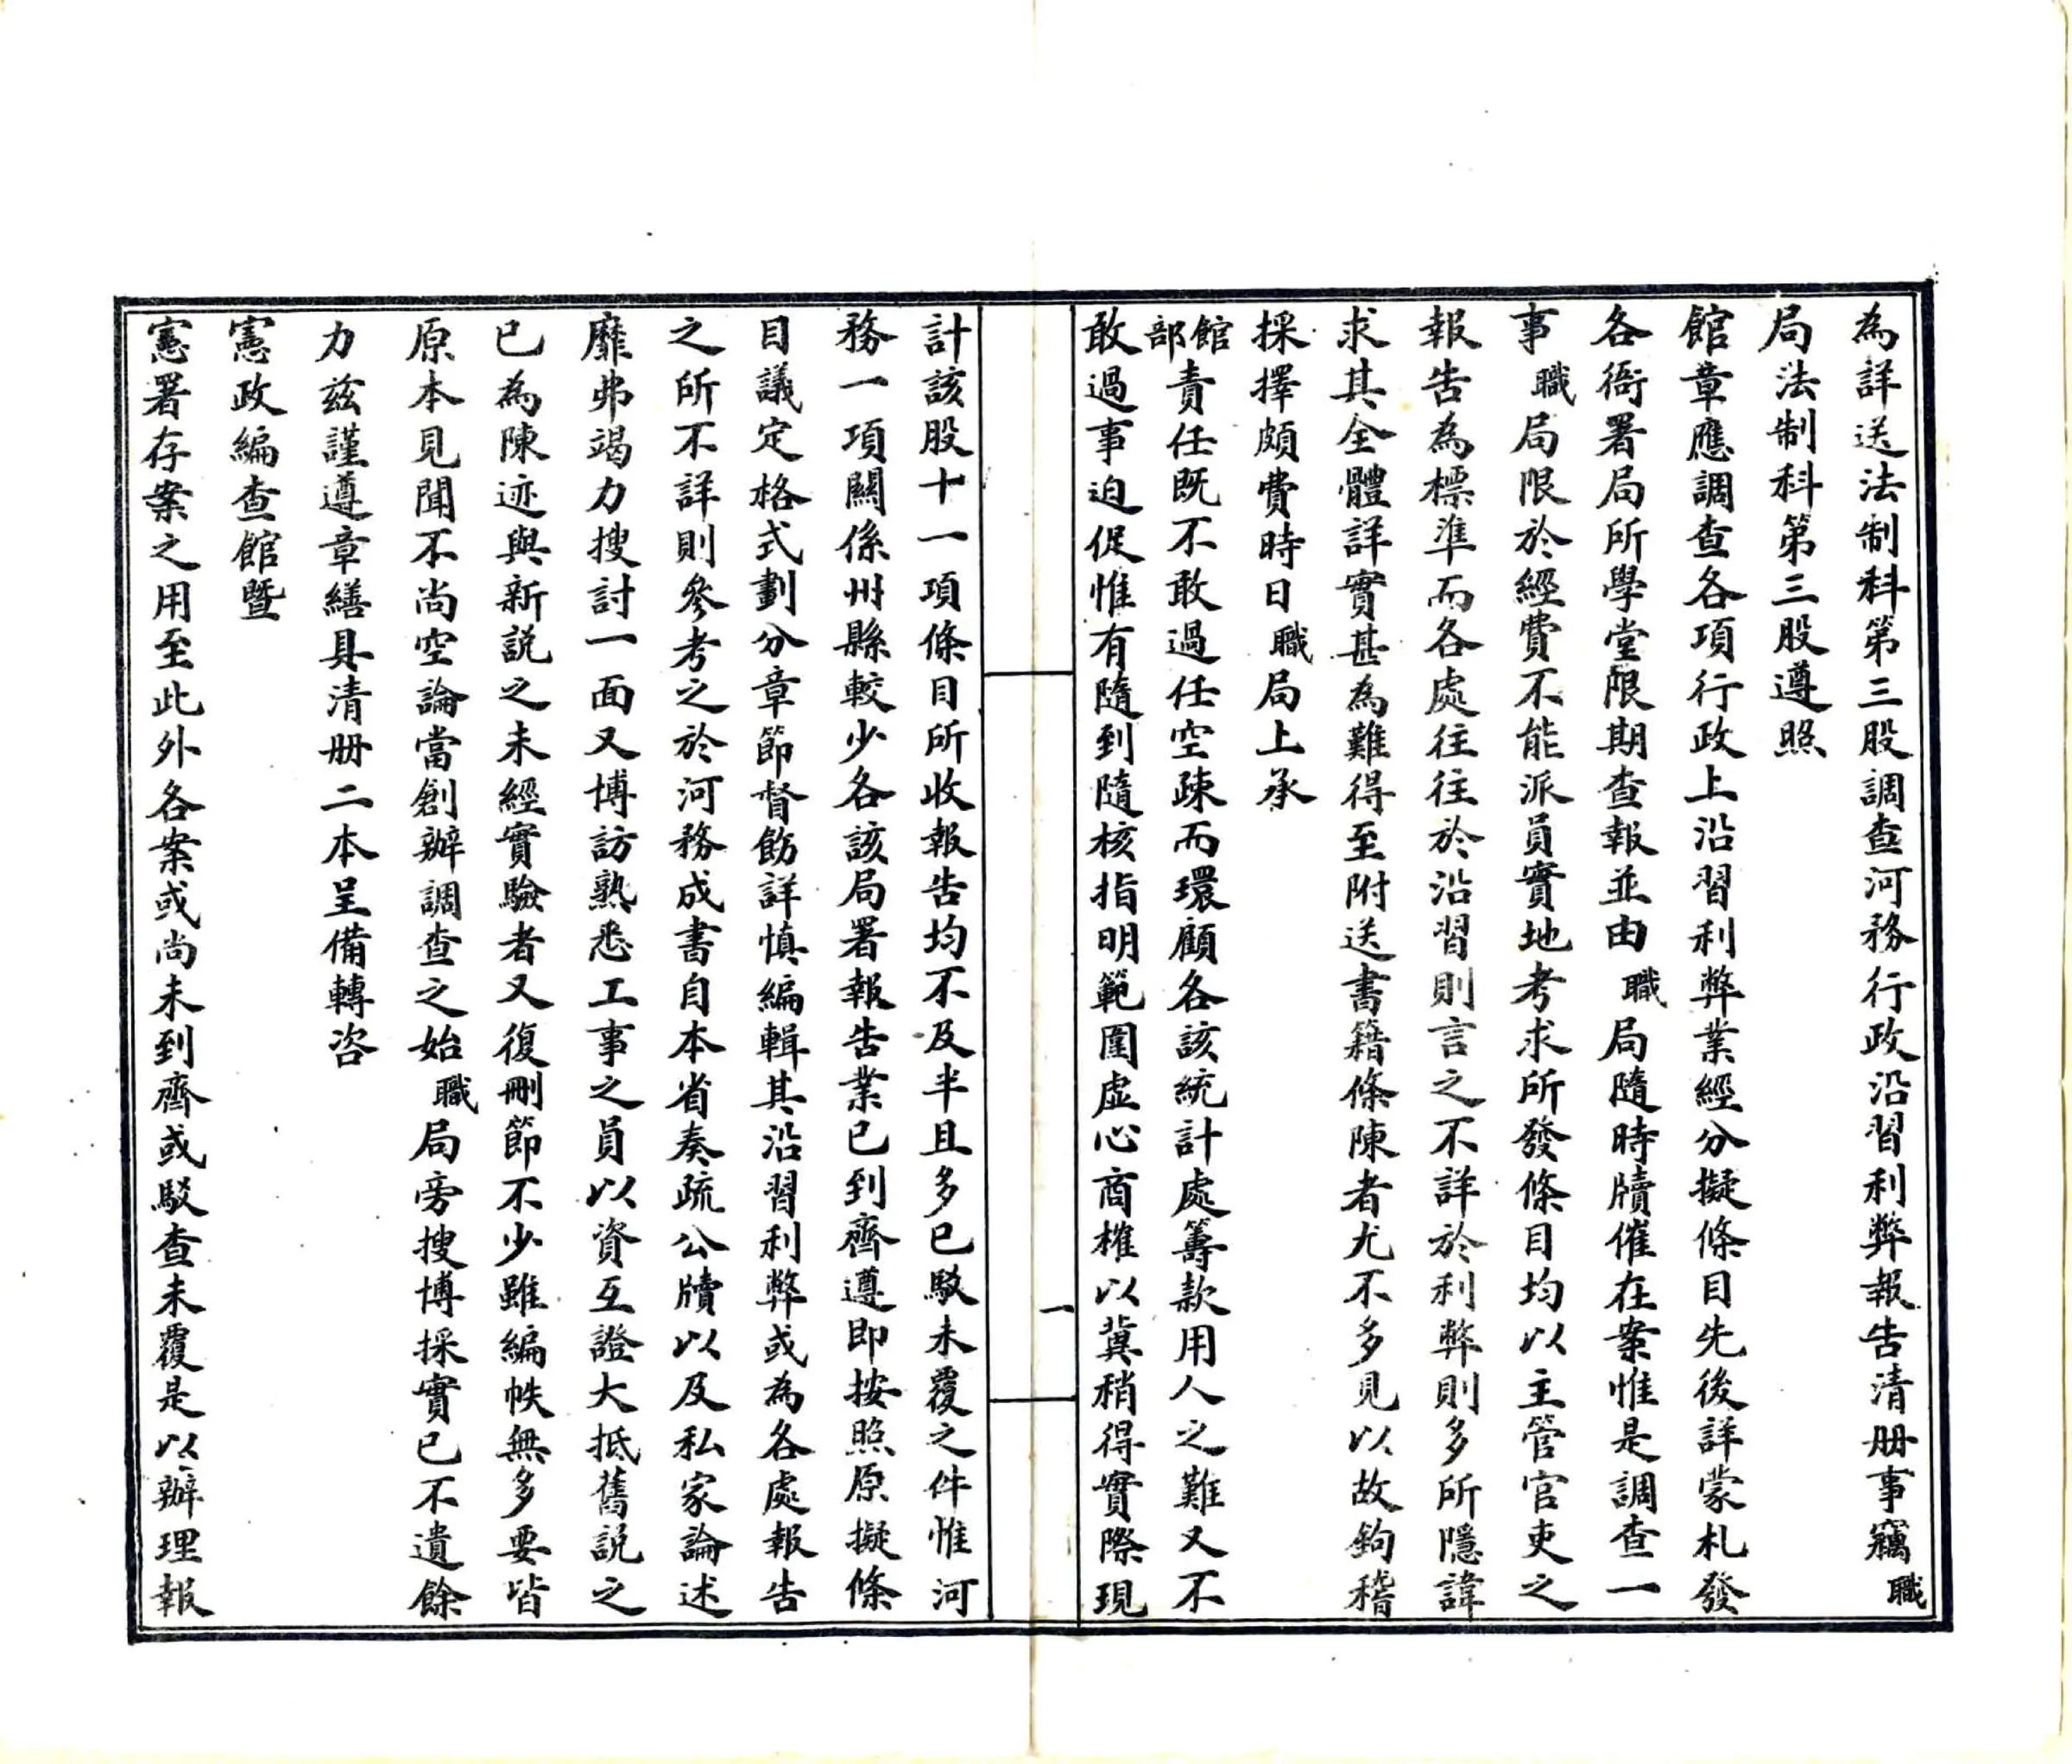 為詳送法制科第三股調查河務行政沿習利弊報告清册事竊職
局法制科第三股遵照
館章應調查各項行政上沿習利弊業經分擬條目先後詳蒙札發
各衙署局所學堂限期查報並由職局隨時牘催在案惟是調查一
事職局限於經費不能派員實地考求所發條目均以主管官吏之
報告為標準而各處往往於沿習則言之不詳於利弊則多所隱諱
求其全體詳實甚為難得至附送書籍條陳者尤不多見以故鉤稽
採擇頗費時日職局上承
館部責任既不敢過任空疎而環顧各該統計處籌款用人之難又不
敢過事迫促惟有隨到隨核指明範圍虛心商榷以冀稍得實際現
一
計該股十一項條目所收報告均不及半且多已駁未覆之件惟河
務一項關係州縣較少各該局署報告業已到齊遵即按照原擬條
目議定格式劃分章節督飭詳慎編輯其沿習利弊或為各處報告
之所不詳則參考之於河務成書自本省奏疏公牘以及私家論述
靡弗竭力搜討一面又博訪熟悉工事之員以資互證大抵舊説之
已為陳迹與新説之未經實驗者又復刪節不少雖編帙無多要皆
原本見聞不尚空論當創辦調查之始職局旁搜博採實已不遺餘
力兹謹遵章繕具清册二本呈備轉咨
憲政編查館暨
憲署存案之用至此外各案或尚未到齊或駁查未覆是以辦理報